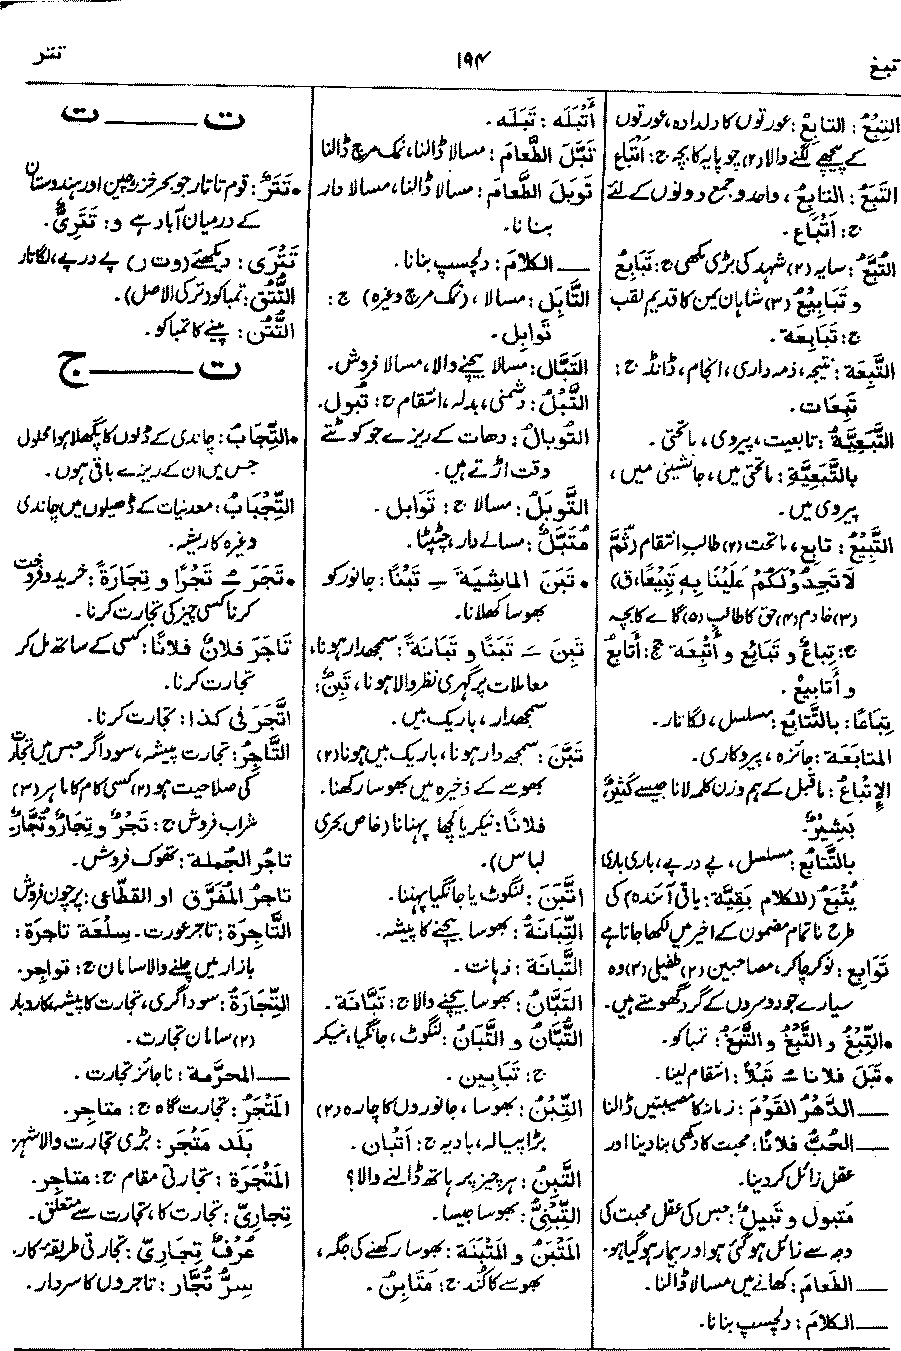 تبغ
۱۹۴
تتر
التِّبْعُ: التابِعُ: عورتوں کا دلدادہ، عورتوں
کے پیچھے لگنے والا (۲) چوپایہ کا بچہ ج: أَتْبَاع
التَّبَعُ: التابِعُ، واحد و جمع دونوں کے لئے
ج: أَتْبَاع۔
التُّبَّعُ: سایہ (۲) شہد کی بڑی مکھی ج: تَبَابِعُ
و تَبَابِيْعُ (۳) شاہان یمن کا قدیم لقب
ج: تَبَابِعَة۔
التَّبِعَة: نتیجہ، ذمہ داری، انجام، ڈانڈ ج:
تَبِعَات۔
التَّبَعِيَّةُ: تابعیت، پیروی، ماتحتی۔
بِالتَّبَعِيَّةِ: ماتحتی میں، جانشینی میں،
پیروی میں۔
التَّبِيْعُ: تابع، ماتحت (۲) طالب انتقام (ثُمَّ
لَا تَجِدُوْلَكُمْ عَلَيْنَا بِهٖ تَبِيْعًا، ق)
(۳) خادم (۴) حق کا طالب (۵) گائے کا بچہ
ج: تِباعٌ و تَبَائِع و أَتْبِعَة جج: أَتَابِعُ
و أَتَابِيعْ۔
تِبَاعًا: بالتَّتَابُع: مسلسل، لگاتار۔
المتابَعة: جائزہ، پیروکاری۔
الإِتْباعُ: ماقبل کے ہم وزن کلمہ لانا جیسے كَثِيْرٌ
بَثِيْرٌ۔
بِالتَّتَابُع: مسلسل، پے درپے، باری باری
يُتْبَعُ (للكلامِ بَقِيَّة: باقی آئندہ) کی
طرح ناتمام مضمون کے اخیر میں لکھا جاتا ہے
تَوَابِع: نوکر چاکر، مصاحبین (۲) طفیلی (۳) وہ
سیارے جو دوسروں کے گرد گھومتے ہیں۔
• التِّبْغُ و التَّبْغُ و التَّبَغُ: تمباکو۔
• تَبَلَ فلانا ـُ تَبْلاً: انتقام لینا۔
ــــ الدَّهْرُ القَوْمَ: زمانہ کا مصیبتیں ڈالنا
ــــ الحُبُّ فلانًا: محبت کا دکھی بنا دینا اور
عقل زائل کر دینا۔
مَتبول و تَبِيلٌ: جس کی عقل محبت کی
وجہ سے زائل ہو گئی ہو اور بیمار ہو گیا ہو۔
ــــ الطعامَ: کھانے میں مسالا ڈالنا۔
ــــ الكلامَ: دلچسپ بنانا۔
أَتْبَلَه: تَبَلَه۔
تَبَّلَ الطَّعامَ: مسالا ڈالنا، نمک مرچ ڈالنا
تَوبَلَ الطَّعامَ: مسالا ڈالنا، مسالا دار
بنانا۔
ــــ الكلامَ: دلچسپ بنانا۔
التَّابَل: مسالا، (نمک مرچ وغیرہ) ج:
تَوابِل۔
التَّبَّال: مسالا بیچنے والا، مسالا فروش۔
التَّبْلُ: دشمنی، بدلہ، انتقام ج: تُبول۔
التُّوبالُ: دھات کے ریزے جو کوٹتے
وقت اڑتے ہیں۔
التَّوبَلُ: مسالا ج: تَوابل۔
مُتَبَّلٌ: مسالے دار، چٹپٹا۔
• تَبَنَ الماشِيَةَ ـِ تَبْنًا: جانور کو
بھوسا کھلانا۔
تَبِنَ ـَ تَبَنًا و تَبَانَةً: سمجھدار ہونا،
معاملات پر گہری نظر والا ہونا، تَبِنٌ:
سمجھدار، باریک بیں۔
تَبَّنَ: سمجھ دار ہونا، باریک بیں ہونا (۲)
بھوسے کے ذخیرہ میں بھوسا رکھنا۔
فلانًا: نیکر یا کچھا پہنانا (خاص بحری
لباس)۔
اتَّبَنَ: لنگوٹ یا جانگیا پہننا۔
التِّبَانَةُ: بھوسا بیچنے کا پیشہ۔
التَّبانَة: ذہانت۔
التَّبَّانُ: بھوسا بیچنے والا ج: تَبَّانَة۔
التُّبَّان و التُّبَانُ: لنگوٹ، جانگیا، نیکر
ج: تَبَابِين۔
التِّبْنُ: بھوسا، جانوروں کا چارہ (۲)
بڑا پیالہ، بادیہ ج: أَتْبان۔
التَّبِنُ: ہر چیز پر ہاتھ ڈالنے والا؟
التِّبْنِيُّ: بھوسا جیسا۔
المَتْبَنُ و المَتْبَنَة: بھوسا رکھنے کی جگہ،
بھوسے کا کُند ج: مَتَابِنُ۔
ت ــــــ ت
• تَتَرٌ: قوم تاتار جو بحر خزر و چین اور ہندوستان
کے درمیان آباد ہے و: تَتَرِيٌّ۔
تَتْرَى: دیکھئے (و ت ر) پے درپے، لگاتار
التُّتُق: تمباکو (ترکی الاصل)۔
التُّتُن: پینے کا تمباکو۔
ت ــــــ ج
• التِّجَابُ: چاندی کے ڈلوں کا پگھلا ہوا محلول
جس میں ان کے ریزے باقی ہوں۔
التِّجْبَابُ: معدنیات کے ڈھیلوں میں چاندی
وغیرہ کا ریشہ۔
• تَجَرَ ـُ تَجْرًا و تِجَارَةً: خرید و فروخت
کرنا، کسی چیز کی تجارت کرنا۔
تَاجَرَ فلانٌ فلانًا: کسی کے ساتھ مل کر
تجارت کرنا۔
اتَّجَرَ في كذا: تجارت کرنا۔
التَّاجِرُ: تجارت پیشہ، سوداگر جس میں تجارت
کی صلاحیت ہو (۲) کسی کام کا ماہر (۳)
شراب فروش ج: تَجْرٌ و تِجَارٌ و تُجَّارٌ۔
تاجرُ الجُملة: تھوک فروش۔
تاجرُ المُفَرَّق او القطَّاعى: پرچون فروش
التَّاجِرَة: تاجر عورت۔ سِلْعَة تاجرَة:
بازار میں چلنے والا سامان ج: تواجر۔
التِّجَارَةُ: سوداگری، تجارت کا پیشہ، کاروبار
(۲) سامان تجارت۔
ــــ المحرَّمة: ناجائز تجارت۔
المَتْجَرُ: تجارت گاہ ج: متاجر۔
بَلَد مَتْجَر: بڑی تجارت والا شہر۔
المَتْجَرَة: تجارتی مقام ج: متاجر۔
تِجارِيّ: تجارت کا، تجارت سے متعلق۔
عُرْفٌ تِجَارِيّ: تجارتی طریقۂ کار۔
سِرُّ تُجَّار: تاجروں کا سردار۔